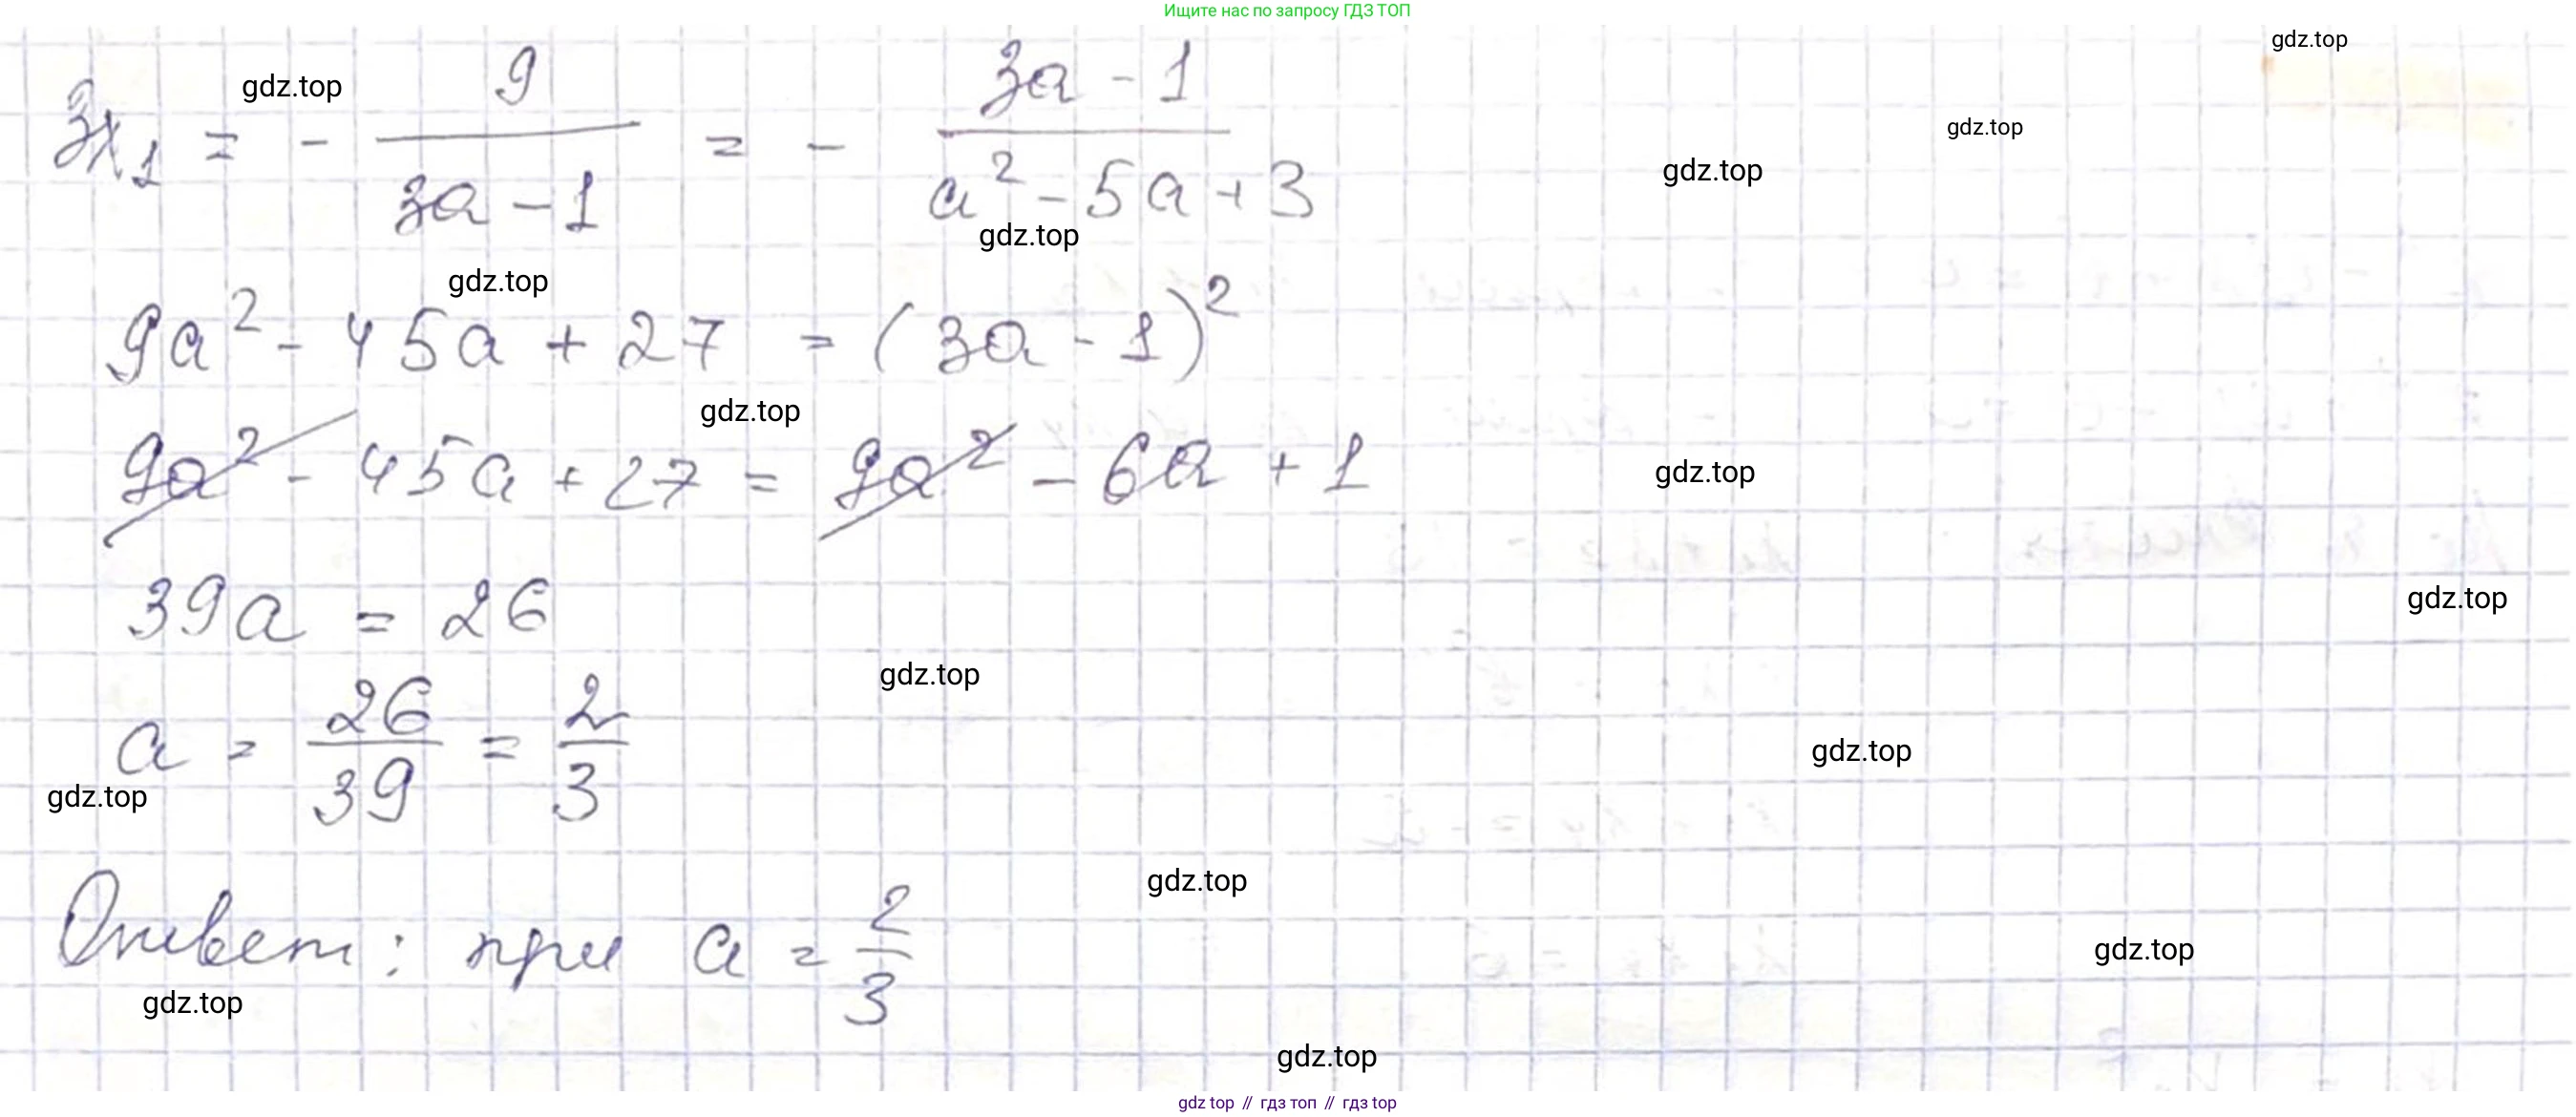 Ищите нас по запросу ГДЗ ТОП
gdz.top
gdz.top
gdz.top
gdz.top
3x₁ = - 9/(3a - 1) = - (3a - 1)/(a² - 5a + 3)
gdz.top
gdz.top
9a² - 45a + 27 = (3a - 1)²
gdz.top
9a² - 45a + 27 = 9a² - 6a + 1
gdz.top
39a = 26
gdz.top
gdz.top
a = 26/39 = 2/3
gdz.top
gdz.top
gdz.top
Ответ: при a = 2/3
gdz.top
gdz.top
gdz.top
gdz top // гдз топ // гдз top